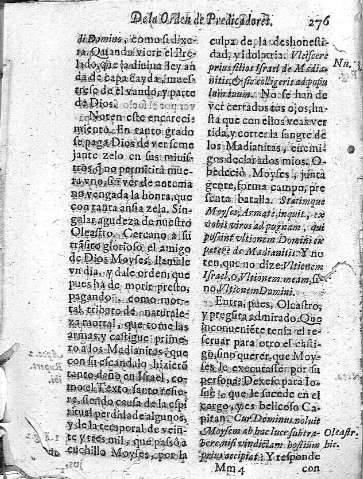 De la Orden de Predicadores. 276
di Domino, como si dixe-
ra. Quando viere el Pre-
lado, que la divina ley an
da de capa cayda, mues-
trese de el vando, y parte
de Dios.
Noten este encareci-
miento. En tanto grado
se paga Dios de ver seme
jante zelo en sus minis
tros, no permitirà mue-
ra vno, sin ver de antema
no, vengada la honra, que
con tanta ansia zela. Sin-
gular agudeza de nuestro
Oleastro. Cercano a su
glorioso el amigo
de Dios Moyses, llamale
vn dia, y dale orden, que
pues ha de morir presto,
pagando, como mor-
tal, tributo de naturale-
za mortal, que tome las
armas, y castigue prime-
ro a los Madianitas, que
con su escandalo hizieró
tanto daño en Israel, co-
mo el Texto santo refie-
re, siendo causa de la espi
ritual perdida de algunos,
y de la temporal de vein-
te y tres mil, que passò a
cuchillo Moyses, por la
culpa de la deshonesti-
dad, y idolatria. Vlciscere
prius filios Israel de Madia-
nitis, & sic colligeris ad popu
lum tuum. No se han de
ver cerrados tus ojos, ha-
sta que con ellos veas ver
tida, y correr la sangre de
los Madianitas, enemi-
gos declarados mios. O-
bedeciò Moyses, junta
gente, forma campo, pre
senta batalla. Statimque
Moyses, Armate, inquit, ex
vobis viros ad pugnam, qui
possint vltionem Domini ex
petere de Madianitis. Y no
ten, que no dize, Vltionem
Israel, o, Vltionem meam, si
no, Vltionem Domini.
Entra, pues, Olcastro,
y pregûta admirado. Que
inconueniéte tenia el re-
seruar para otro el casti-
go, sino querer, que Moy-
ses lo executasse por su
persona? Dexese para Io-
sue, que le sucede en el
cargo, y es belicoso Ca-
pitan. Cur Dominus noluit
Moysem ab hac luce subtra-
here, nisi vindictam hostium
prius accipiat? Y responde
Mm 4 con
Nn.
Oleastr.
hic.